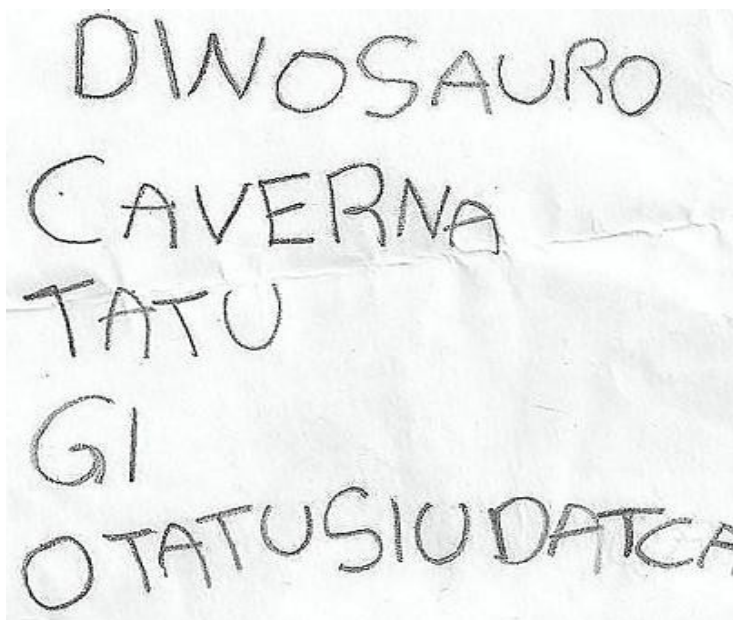 DINOSAURO
CAVERNA
TATU
GI
OTATUSIUDATCA